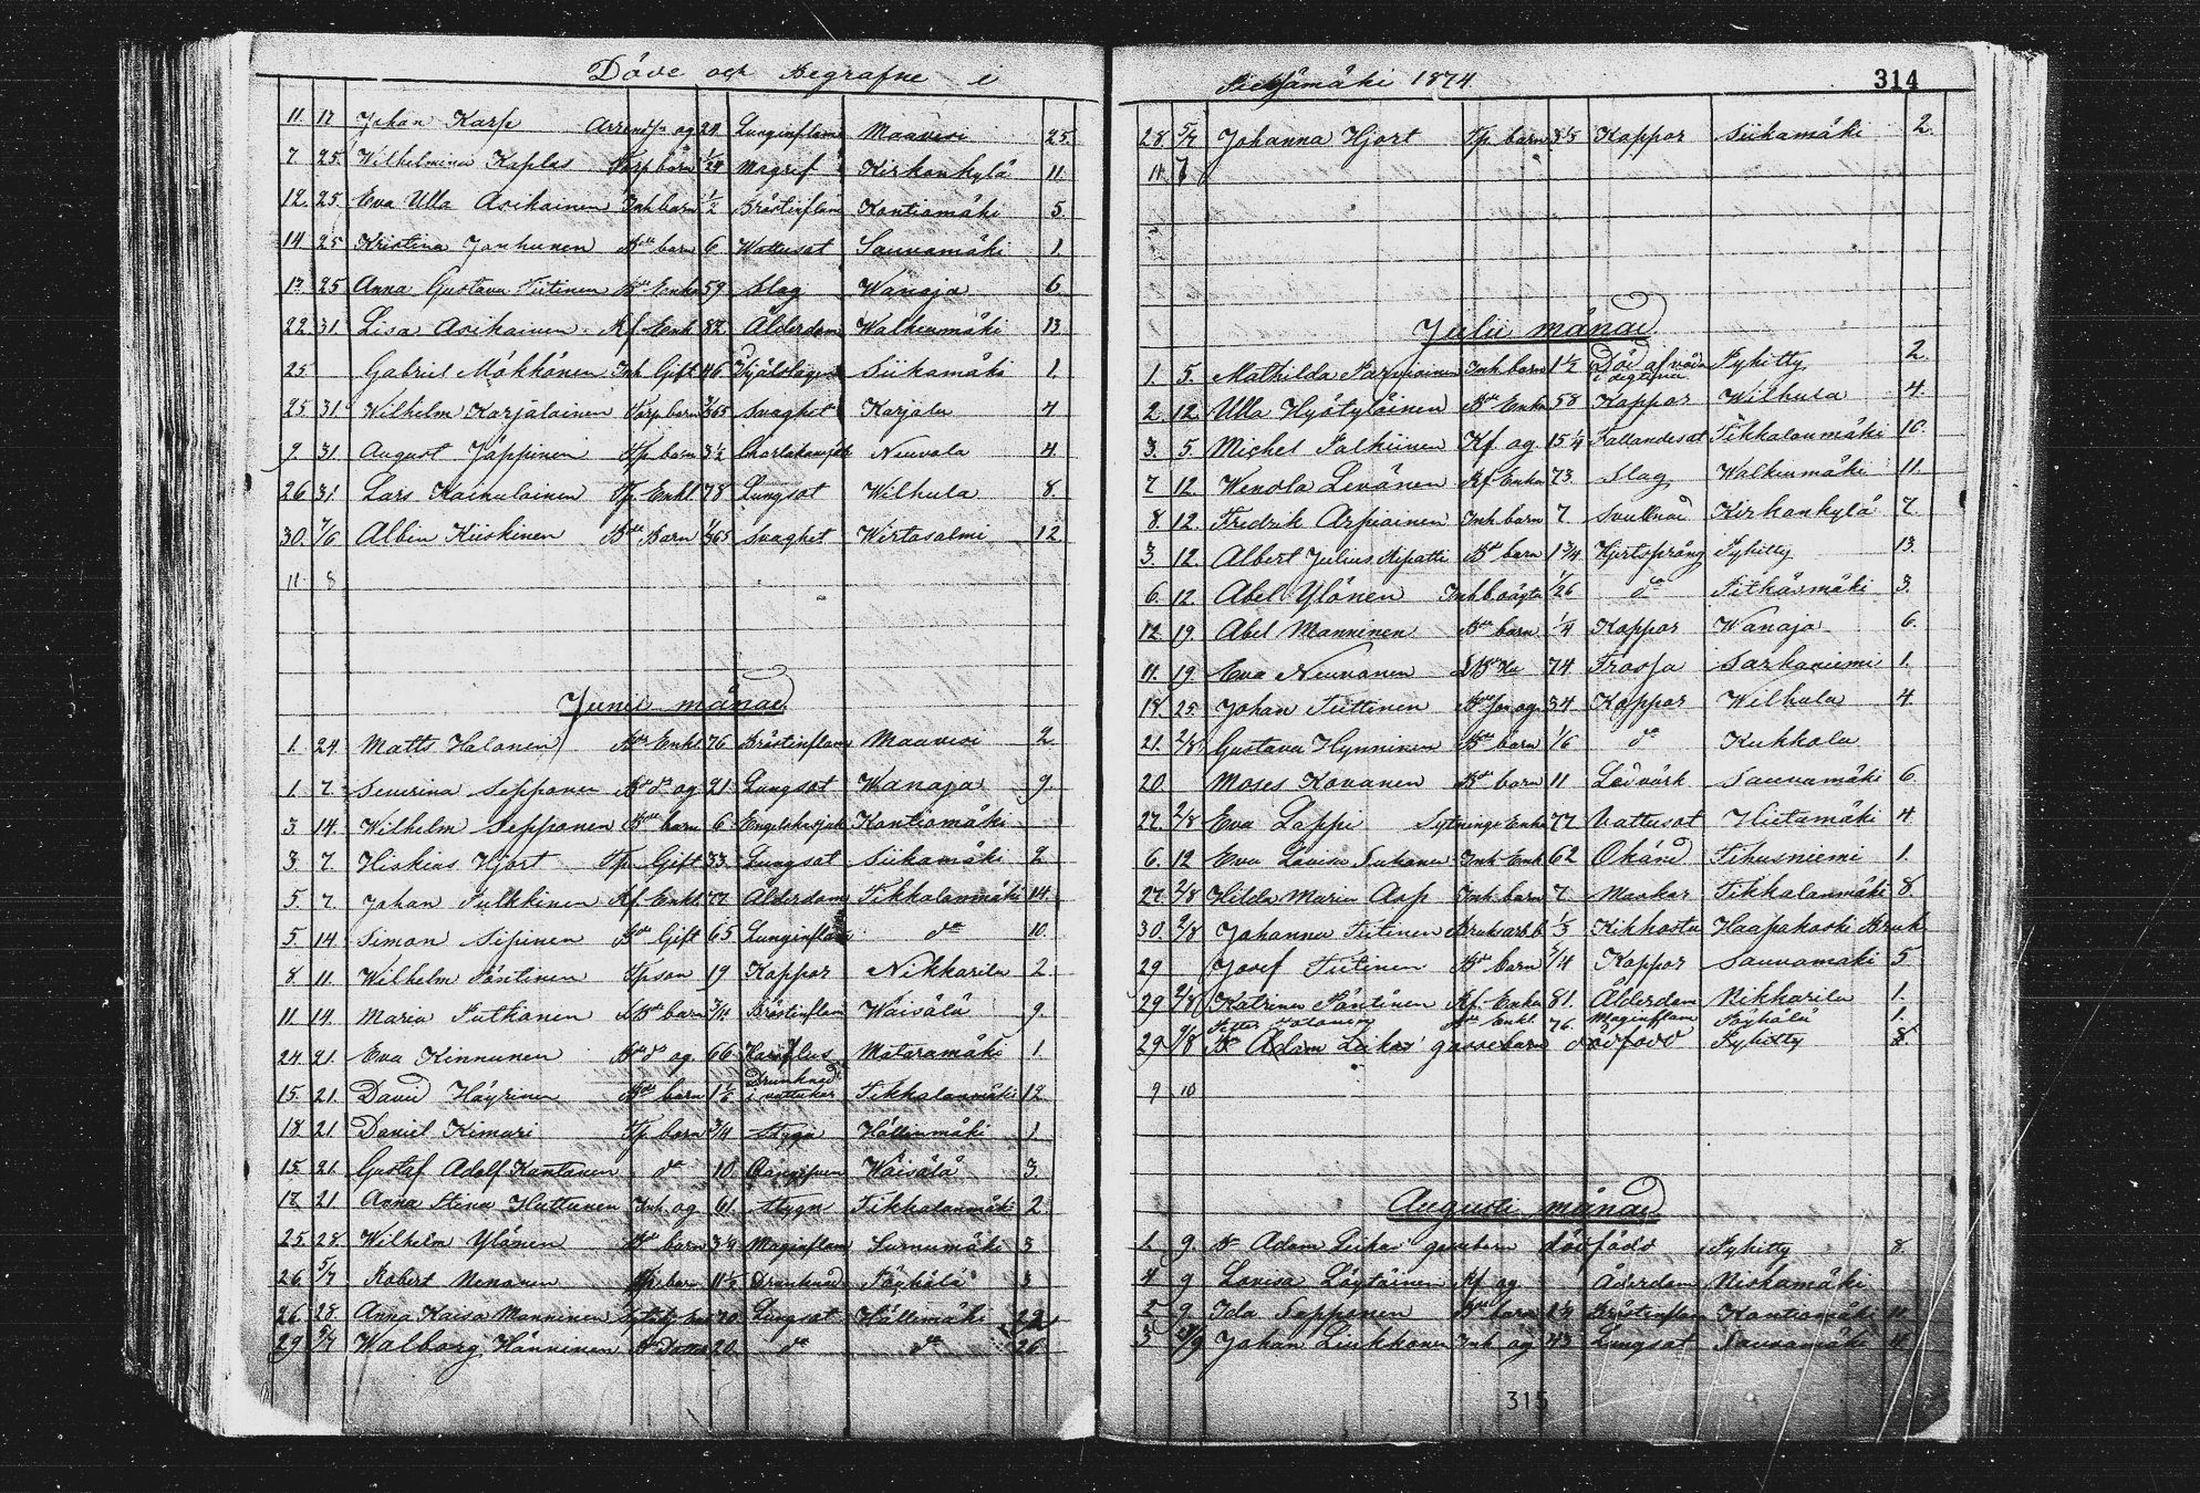 Döde och Begrafne i
11 17 Johan Karp ag 24 Lunginflam Maavesi 25.
7 25. Wilhelmina Kaplas Torp barn 1/24 Magref Kirkonkylä 11
12. 25. Eva Ulla Asikainen Inh barn 1/2 Bröstinflam Kontiomäki 5.
14 25 Kristina Janhunen Bde barn 6 Wattusot Sauvamäki 1.
13 25 Anna Gustava Tiitinen Bde Enka 59 Slag Wanaja 6
22. 31. Lisa Asikainen Kf Enk 82. Ålderdom Walkeamäki 13
25 Gabriel Mökkönen Inh Gift 46 Siikamäki 1.
25 31. Wilhelm Karjalainen Torp barn 3/365 Svaghet Karjala 4
9. 31. August Jäppinen Tp barn 3 1/2 Neuvola 4.
26 31. Lars Kainulainen Tp Enkl 78 Lungsot Wilhula 8.
30. 7/6 Albin Kiiskinen Bde Barn 1/365 Svaghet Wirtasalmi 12
11 8
Junii månad
1. 24. Matts Halonen Bde Enkl 76 Bröstinflam Maavesi 2
1. 7. Severina Sepponen Bde dr ag 21 Lungsot Wanaja 9.
3 14. Wilhelm Sepponen Bde barn 6 Engelska sjuk Kontiomäki
3. 7. Hiskias Hjort Tp. Gift 33. Lungsot Siikamäki 2
5. 7. Johan Pulkkinen Kf. Enkl. 77 Ålderdom Tikkalanmäki 14.
5. 14 Simon Sipinen Bde Gift 65 Lunginflam do 10.
8 11. Wilhelm Pöntinen Tp son 19 Koppor Nikkarila 2.
11 14. Maria Putkonen Bde barn Bröstinflam Waisälä 9.
24 21. Eva Kinnunen Bde dr ag 66 Mataramäki 1.
15. 21. David Häyrinen Bde barn 1 1/2 Drunknad i vattukar Tikkalanmäki 12
18. 21. Daniel Kimari Tp barn 3/4 Stygn Hällinmäki 1
15 21. Gustaf Adolf Kantanen do 10. Waisälä 3.
17 21. Anna Stina Huttunen Inh ag 61. Stygn Tikkalanmäki 2
25. 28. Wilhelm Ylönen Bde barn 3/4 Maginflam Surnumäki 3
26 5/7 Robert Nenonen Tp barn 11 1/2 Drunknad Pöyhölä 3
26. 28. Anna Kaisa Manninen 70 Lungsot Hällinmäki 22
29 5/7 Walborg Hänninen Bde Dotter 20. do do 26
Pieksämäki 1874. 314
28. 5/7 Johanna Hjort Tp. barn Koppor Siikamäki 2.
11 7
Julii månad
1. 5. Mathilda Parviainen Inh barn 1 1/2 Död af våda Pyhitty 2
2. 12. Ulla Hyötyläinen Bde Enka 58 Koppor Wilhula 4.
3. 5. Michel Pulkkinen Kf ag 15 1/4 Fallandesot Tikkalanmäki 10.
7 12. Wendla Levänen Kf Enka 73. Slag Walkeamäki 11.
8. 12. Fredrik Arpiainen Inh barn 7 Svullnad Kirkonkylä 7.
3. 12. Albert Julius Ripatti Bde barn 1 3/4 Hjertsprång Pyhitty 13.
6. 12. Abel Ylönen Inh b oägta 1/26 do Pitkämäki 3.
12. 19. Abel Manninen Bde barn 1/4 Koppor Wanaja 6.
11. 19. Eva Neuvonen 74. Frossa Sarkaniemi 1.
18. 25. Johan Tiittinen Bde son ag 34 Koppor Wilhula 4.
21. 2/8 Gustava Hynninen Bde barn 1/6 do Kukkola
20. Moses Kovanen Bde barn 11 Ledvärk Sauvamäki 6.
27. 2/8 Eva Lappi Sytnings Enka 77 Vattusot Hietamäki 4
6. 12 Eva Lovisa Suhonen Inh Enk 62 Okänd Tihusniemi 1.
27. 2/8 Hilda Maria Asp Inh barn 7 Maskar Tikkalanmäki 8.
30. 2/8 Johanna Tiitinen Bruksarb b. 1/3 Kikhosta Haapakoski Bruk
29 Josef Tiitinen Bde barn 3/4 Koppor Sauvamäki 5
29 2/8 Katrina Pöntinen Kf. Enka 81. Ålderdom Nikkarila 1.
Petter Enkl. 76. Maginflam Pöyhölä 1.
29 9/8 Bde Adam Leikas gossebarn dödfödd Pyhitty 8.
9 10
Augusti månad
1. 9. Bde Adam Leikas gossebarn dödfödd Pyhitty 8.
4 9 Lovisa Löytäinen Kf ag Ålderdom Niskamäki
5 9. Ida Sepponen Bde barn Bröstinflam Kontiomäki 11
3 Johan Liukkonen Inh ag 43 Lungsot Sauvamäki 4
315